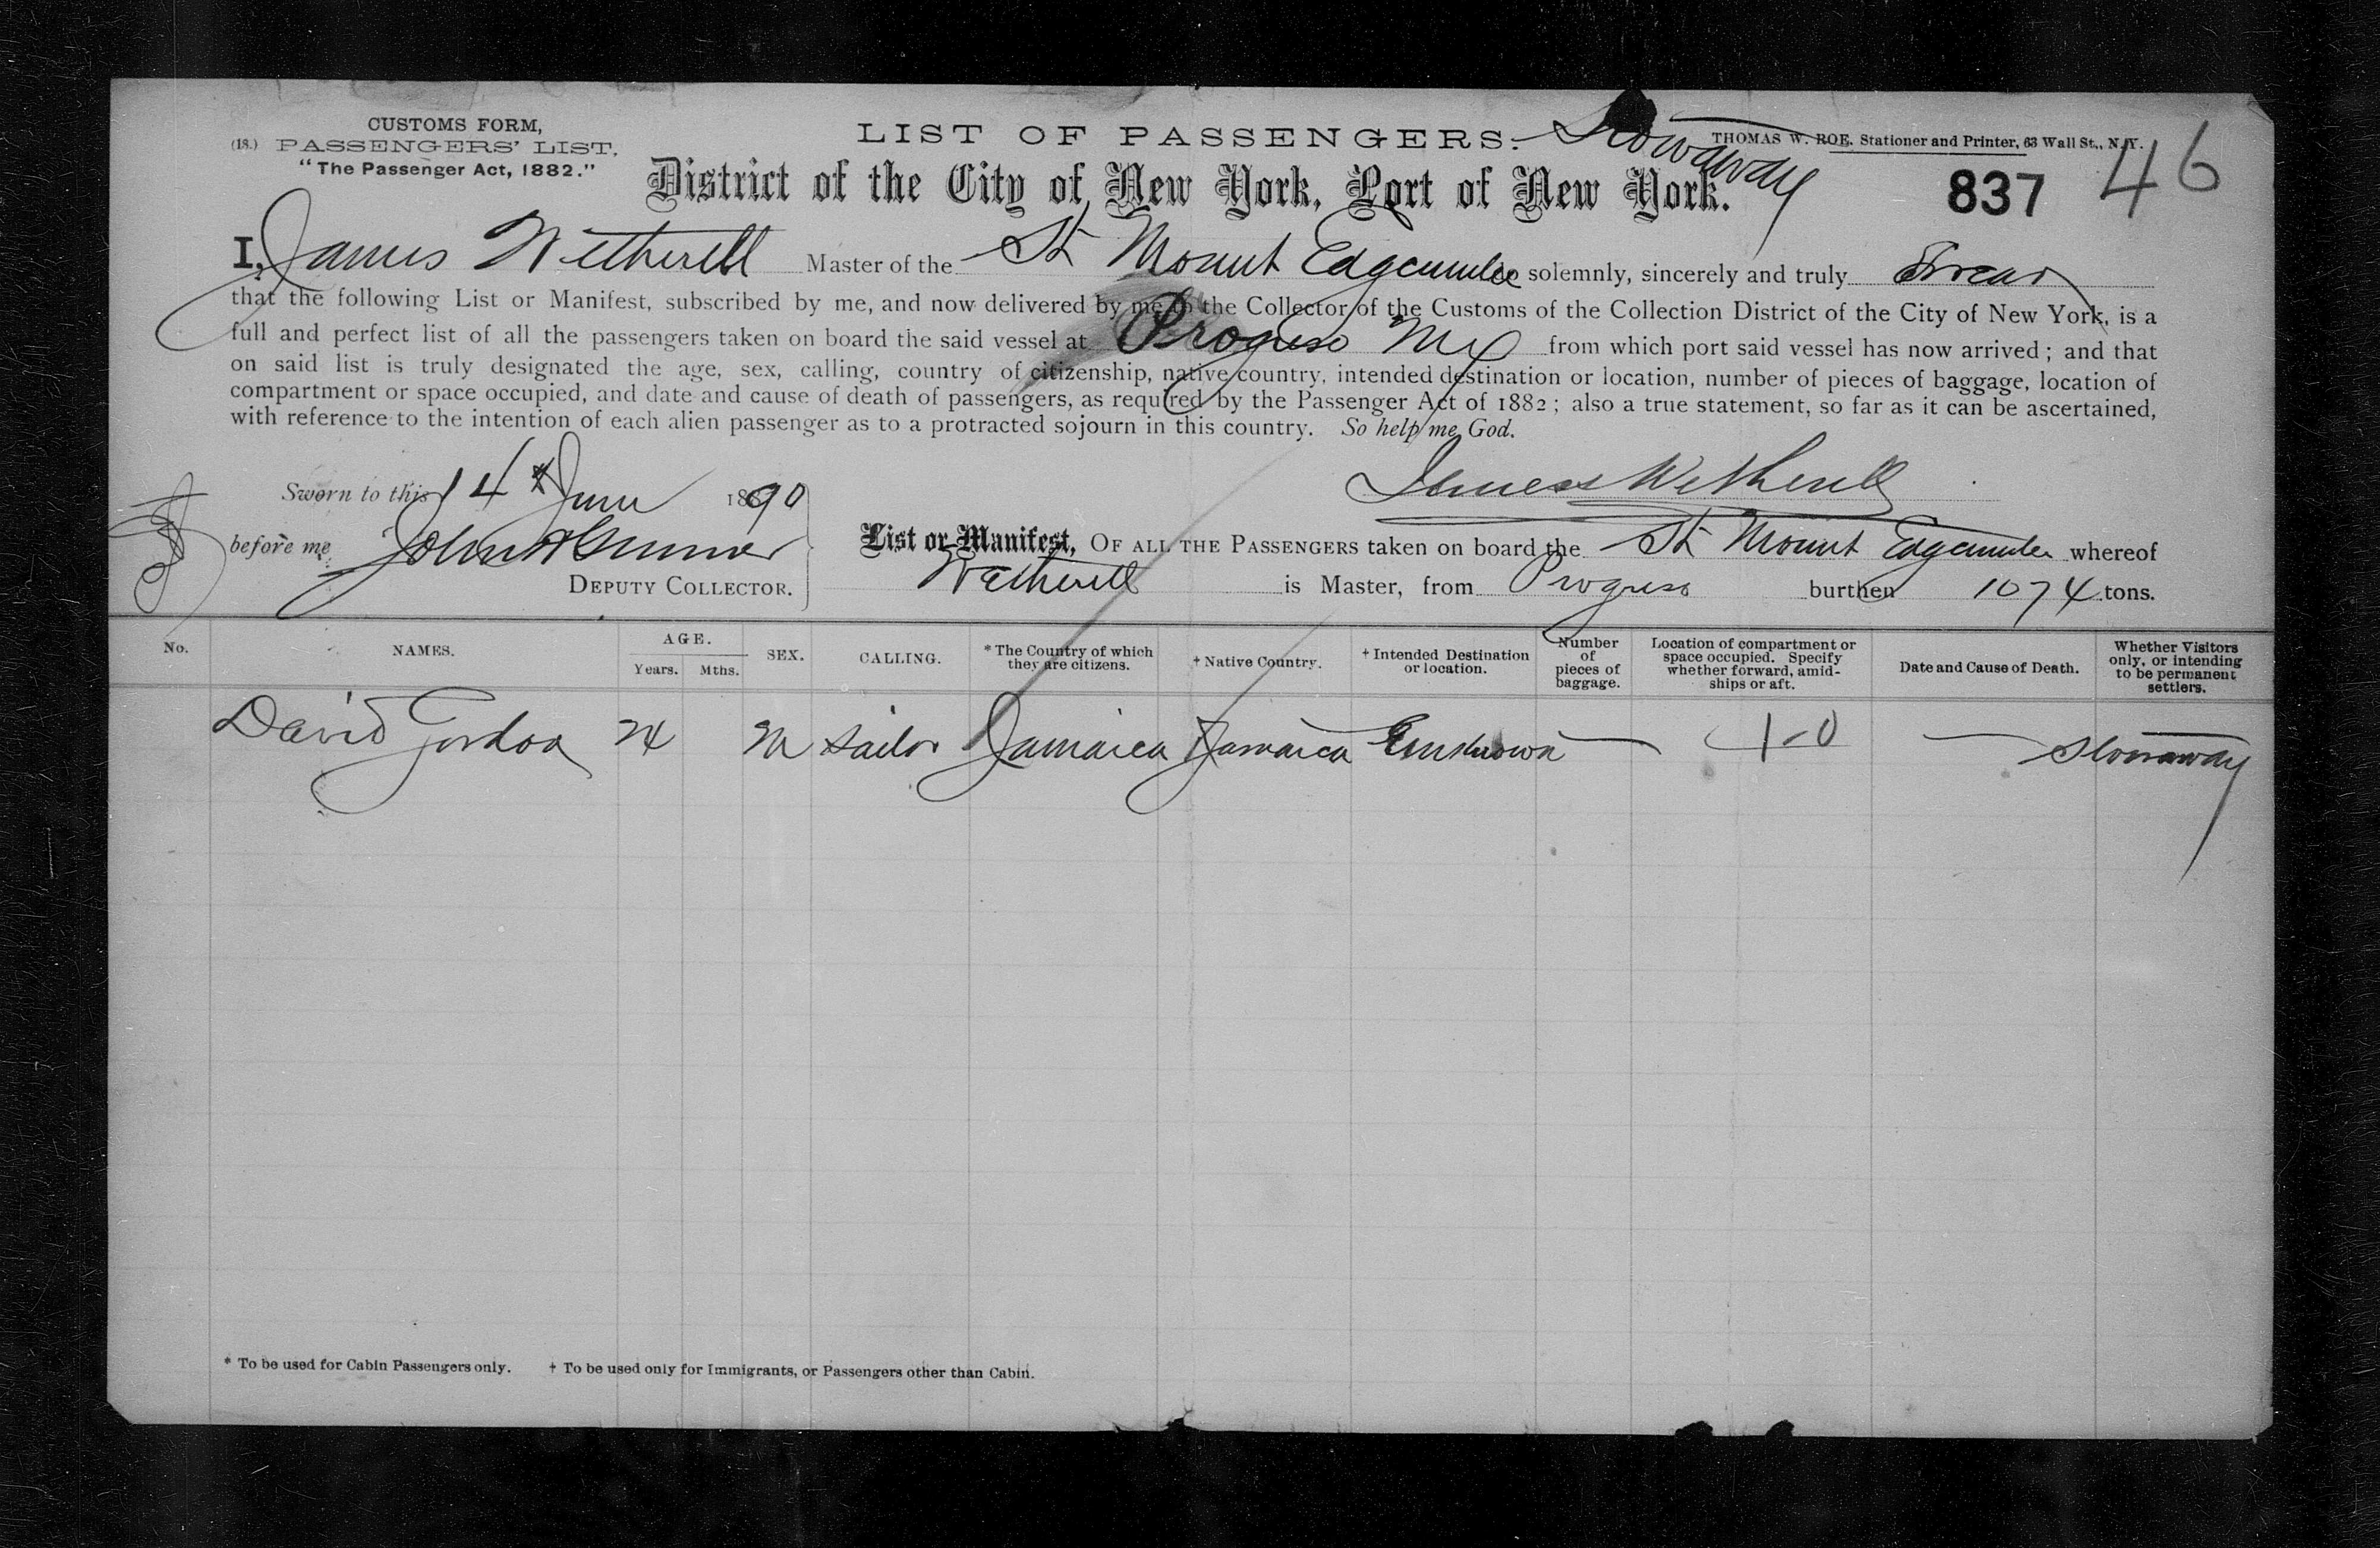 CUSTOMS FORM,
(18.) PASSENGERS' LIST.
"The Passenger Act, 1882."
LIST OF PASSENGERS. Stowaway
THOMAS W. ROE. Stationer and Printer, 63 Wall St., N.Y.
District of the City of New York, Port of New York.
837 46
I, James Wetherell Master of the St Mount Edgcumbe do solemnly, sincerely and truly Swear
that the following List or Manifest, subscribed by me, and now delivered by me to the Collector of the Customs of the Collection District of the City of New York, is a
full and perfect list of all the passengers taken on board the said vessel at Progreso Mex from which port said vessel has now arrived; and that
on said list is truly designated the age, sex, calling, country of citizenship, native country, intended destination or location, number of pieces of baggage, location of
compartment or space occupied, and date and cause of death of passengers, as required by the Passenger Act of 1882; also a true statement, so far as it can be ascertained,
with reference to the intention of each alien passenger as to a protracted sojourn in this country. So help me God.
James Wetherell
Sworn to this 14th June 1890
before me John
DEPUTY COLLECTOR.
List or Manifest, OF ALL THE PASSENGERS taken on board the St Mount Edgcumbe whereof
Wetherell is Master, from Progreso burthen 1074 tons.
No. NAMES. AGE. Years. Mths. SEX. CALLING. * The Country of which they are citizens. † Native Country. † Intended Destination or location. Number of pieces of baggage. Location of compartment or space occupied. Specify whether forward, amid-ships or aft. Date and Cause of Death. Whether Visitors only, or intending to be permanent settlers.
David Gordon 24 M Sailor Jamaica Jamaica Unknown — 1-0 — Stowaway
* To be used for Cabin Passengers only. † To be used only for Immigrants, or Passengers other than Cabin.